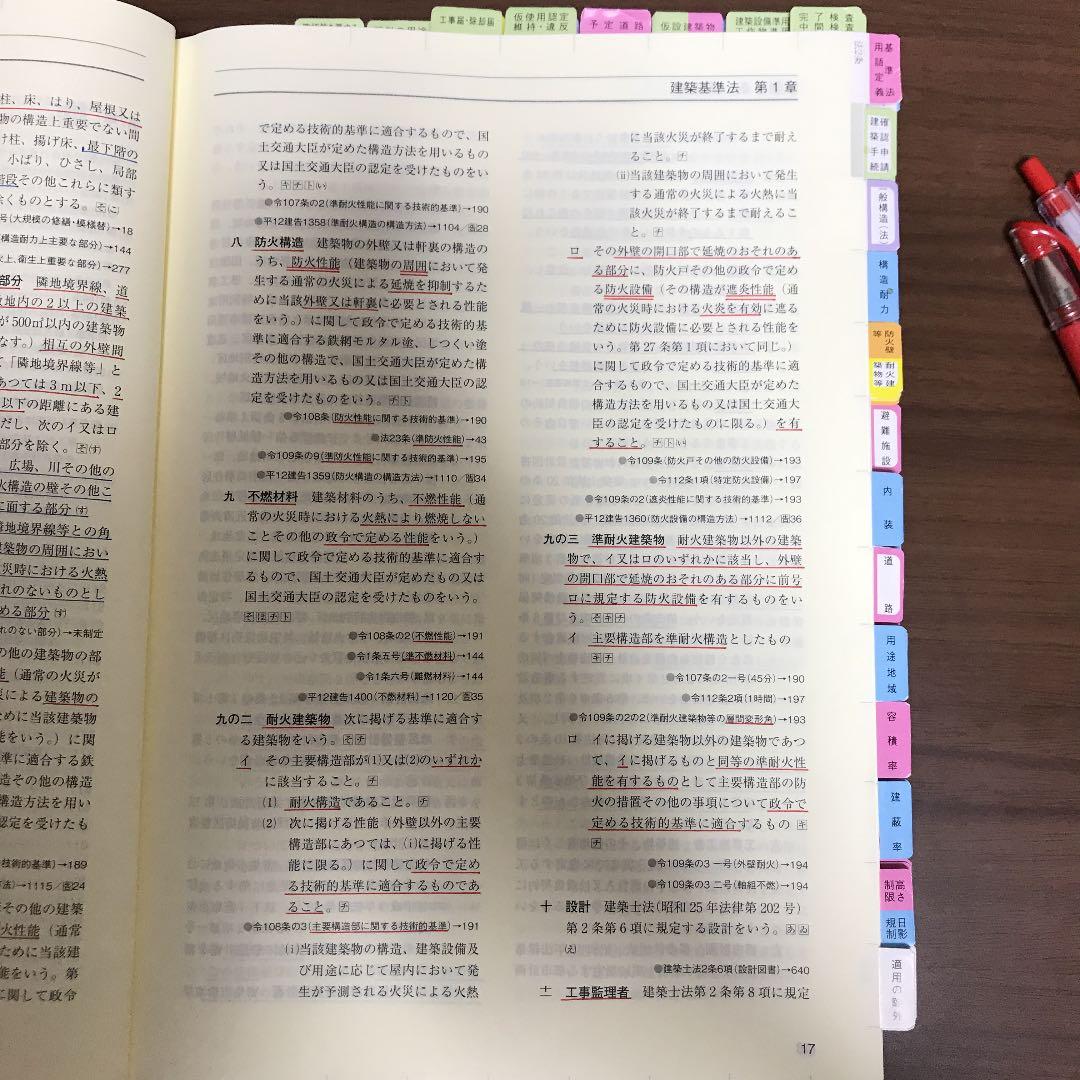 工事届・除却届
仮使用認定
維持・違反
予定道路
仮設建築物
建築設備準用
完了検査
中間検査
建築基準法 第1章
柱、床、はり、屋根又は
物の構造上重要でない間
け柱、揚げ床、最下階の
小ばり、ひさし、局部
階段その他これらに類す
くものとする。
号(大規模の修繕・模様替)→18
構造耐力上主要な部分)→144
上、衛生上重要な部分)→277
部分 隣地境界線、道
敷地内の2以上の建築
が500㎡以内の建築物
なす。)相互の外壁間
て「隣地境界線等」と
あつては3m以下、2
以下の距離にある建
だし、次のイ又はロ
部分を除く。
広場、川その他の
火構造の壁その他こ
に面する部分
隣地境界線等との角
築物の周囲におい
災時における火熱
れのないものとし
める部分
れのない部分)→未制定
の他の建築物の部
能(通常の火災が
災による建築物の
ために当該建築物
能をいう。)に関
準に適合する鉄
造その他の構造
構造方法を用い
認定を受けたも
技術的基準)→189
法)→1115/告24
その他の建築
火性能(通常
ために当該建
能をいう。第
に関して政令
で定める技術的基準に適合するもので、国
土交通大臣が定めた構造方法を用いるもの
又は国土交通大臣の認定を受けたものをい
う。キチトい
●令107条の2(準耐火性能に関する技術的基準)→190
●平12建告1358(準耐火構造の構造方法)→1104/告28
八 防火構造 建築物の外壁又は軒裏の構造の
うち、防火性能(建築物の周囲において発
生する通常の火災による延焼を抑制するた
めに当該外壁又は軒裏に必要とされる性能
をいう。)に関して政令で定める技術的基
準に適合する鉄網モルタル塗、しつくい塗
その他の構造で、国土交通大臣が定めた構
造方法を用いるもの又は国土交通大臣の認
定を受けたものをいう。チト
●令108条(防火性能に関する技術的基準)→190
●法23条(準防火性能)→43
●令109条の9(準防火性能に関する技術的基準)→195
●平12建告1359(防火構造の構造方法)→1110/告34
九 不燃材料 建築材料のうち、不燃性能(通
常の火災時における火熱により燃焼しない
ことその他の政令で定める性能をいう。)
に関して政令で定める技術的基準に適合す
るもので、国土交通大臣が定めたもの又は
国土交通大臣の認定を受けたものをいう。
そほチト
●令108条の2(不燃性能)→191
●令1条五号(準不燃材料)→144
●令1条六号(難燃材料)→144
●平12建告1400(不燃材料)→1120/告35
九の二 耐火建築物 次に掲げる基準に適合す
る建築物をいう。そチ
イ その主要構造部が(1)又は(2)のいずれか
に該当すること。チ
(1) 耐火構造であること。チ
(2) 次に掲げる性能(外壁以外の主要
構造部にあつては、(i)に掲げる性
能に限る。)に関して政令で定め
る技術的基準に適合するものであ
ること。チ
●令108条の3(主要構造部に関する技術的基準)→191
(i)当該建築物の構造、建築設備及
び用途に応じて屋内において発
生が予測される火災による火熱
に当該火災が終了するまで耐え
ること。チ
(ii)当該建築物の周囲において発生
する通常の火災による火熱に当
該火災が終了するまで耐えるこ
と。チ
ロ その外壁の開口部で延焼のおそれのあ
る部分に、防火戸その他の政令で定め
る防火設備(その構造が遮炎性能(通
常の火災時における火炎を有効に遮る
ために防火設備に必要とされる性能を
いう。第27条第1項において同じ。)
に関して政令で定める技術的基準に適
合するもので、国土交通大臣が定めた
構造方法を用いるもの又は国土交通大
臣の認定を受けたものに限る。)を有
すること。チトい
●令109条(防火戸その他の防火設備)→193
●令112条1項(特定防火設備)→197
●令109条の2(遮炎性能に関する技術的基準)→193
●平12建告1360(防火設備の構造方法)→1112/告36
九の三 準耐火建築物 耐火建築物以外の建築
物で、イ又はロのいずれかに該当し、外壁
の開口部で延焼のおそれのある部分に前号
ロに規定する防火設備を有するものをい
う。そキチ
イ 主要構造部を準耐火構造としたもの
キチ
●令107条の2一号(45分)→190
●令112条2項(1時間)→197
●令109条の2の2(準耐火建築物等の層間変形角)→193
ロ イに掲げる建築物以外の建築物であつ
て、イに掲げるものと同等の準耐火性
能を有するものとして主要構造部の防
火の措置その他の事項について政令で
定める技術的基準に適合するもの キ
チ
●令109条の3 一号(外壁耐火)→194
●令109条の3 二号(軸組不燃)→194
十 設計 建築士法(昭和25年法律第202号)
第2条第6項に規定する設計をいう。あゐ
え
●建築士法2条6項(設計図書)→640
十一 工事監理者 建築士法第2条第8項に規定
17
基準法
用語定義
確認申請
建築手続
般構造(法)
構造耐力
防火壁等
耐火建築物等
避難施設
内装
道路
用途地域
容積率
建蔽率
高さ制限
日影規制
適用の除外